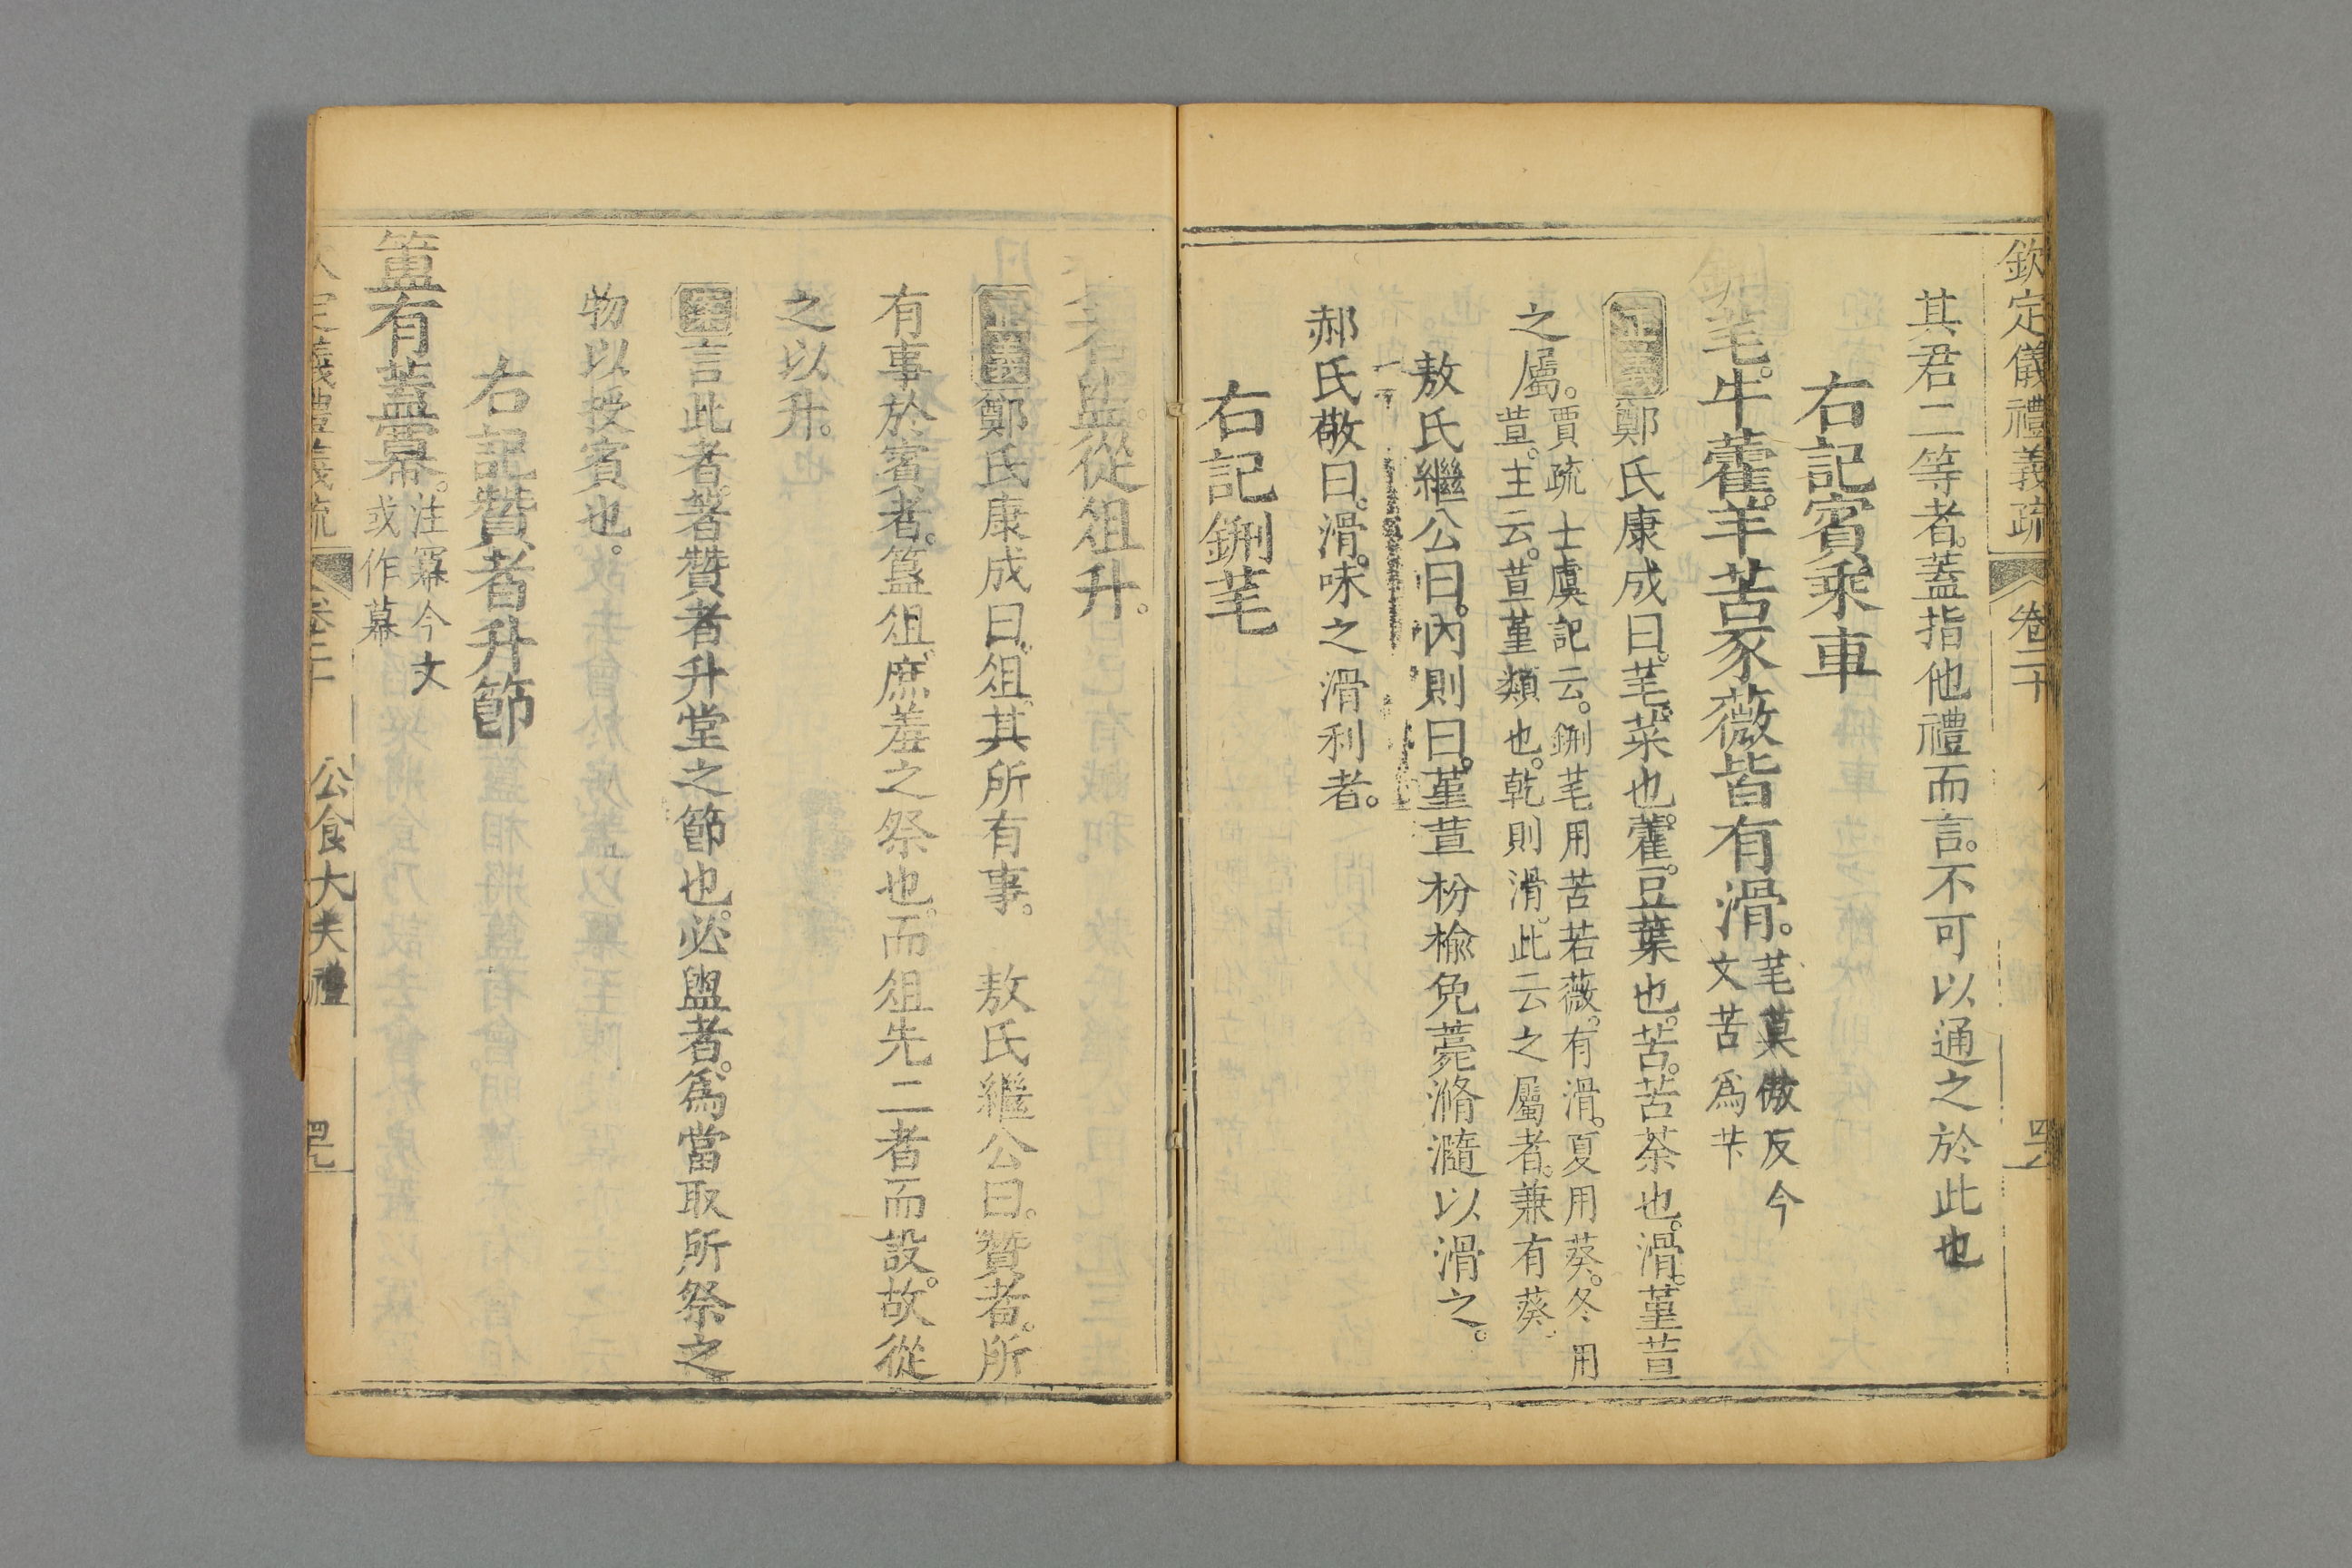 欽定儀禮義疏 卷二十
其君二等者。蓋指他禮而言。不可以通之於此也
右記賓乘車
鉶芼。牛藿。羊苦。豕薇。皆有滑。芼莫傲反今
文苦爲苄
正義鄭氏康成曰。芼。菜也。藿。豆葉也。苦。苦荼也。滑。堇荁
之屬。賈疏士虞記云。鉶芼用苦若薇。有滑。夏用葵。冬用
荁。主云。荁堇類也。乾則滑。此云之屬者。兼有葵
敖氏繼公曰。內則曰。堇荁枌榆免薧滫瀡以滑之。
郝氏敬曰。滑。味之滑利者。
右記鉶芼
贊者盥。從俎升。
正義鄭氏康成曰。俎。其所有事。 敖氏繼公曰。贊者。所
有事於賓者。簋俎。庶羞之祭也。而俎先二者而設。故從
之以升。
案言此者。著贊者升堂之節也。必盥者。爲當取所祭之
物以授賓也。
右記贊者升節
簠有蓋冪。注冪今文
或作幕
欽定儀禮義疏 卷二十 公食大夫禮 四七